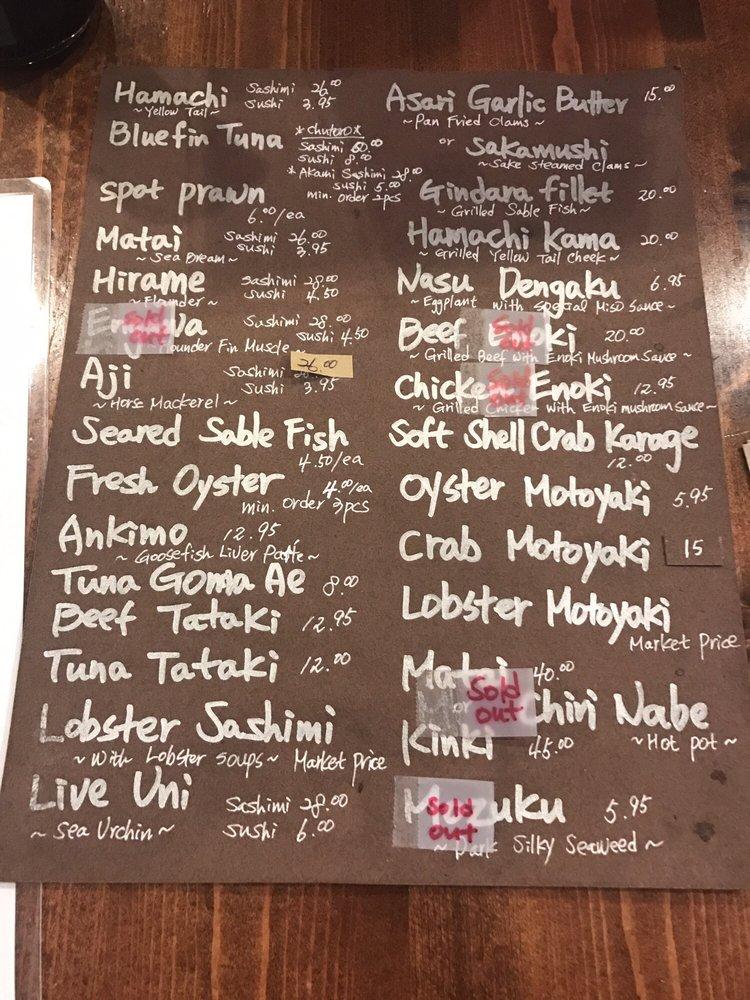 Hamachi Sashimi 26.00
~Yellow Tail~ sushi 3.95
Bluefin Tuna *chutoro*
Sashimi 60.00
sushi 8.00
*Akami Sashimi 28.00
sushi 5.00
min. order 2pcs
spot prawn
6.00/ea
Matai Sashimi 26.00
~Sea Bream~ sushi 3.95
Hirame Sashimi 28.00
~Flounder~ sushi 4.50
Sold out
Sashimi 28.00
sushi 4.50
Flounder Fin Muscle~
26.00
Aji Sashimi
~Horse Mackerel~ sushi 3.95
Seared Sable Fish
4.50/ea
Fresh Oyster 4.00/ea
min. order 2pcs
Ankimo 12.95
~Goosefish Liver Patte~
Tuna Goma Ae 8.00
Beef Tataki 12.95
Tuna Tataki 12.00
Lobster Sashimi
~with Lobster soups~ Market price
Live Uni Sashimi 28.00
~Sea Urchin~ sushi 6.00
Asari Garlic Butter 15.00
~Pan Fried Clams~
or Sakamushi
~Sake steamed Clams~
Gindara fillet 20.00
~Grilled Sable Fish~
Hamachi Kama 20.00
~Grilled Yellow Tail Cheek~
Nasu Dengaku 6.95
~Eggplant with special Miso sauce~
Beef Enoki 20.00
Sold out
~Grilled Beef with Enoki Mushroom Sauce~
Chicken Enoki 12.95
Sold out
~Grilled Chicken with Enoki mushroom sauce~
Soft Shell Crab Karage
12.00
Oyster Motoyaki 5.95
Crab Motoyaki 15
Lobster Motoyaki
Market Price
Matai 40.00
Sold out
Chiri Nabe
Kinki 45.00 ~Hot pot~
Mozuku 5.95
Sold out
~Dark Silky Seaweed~